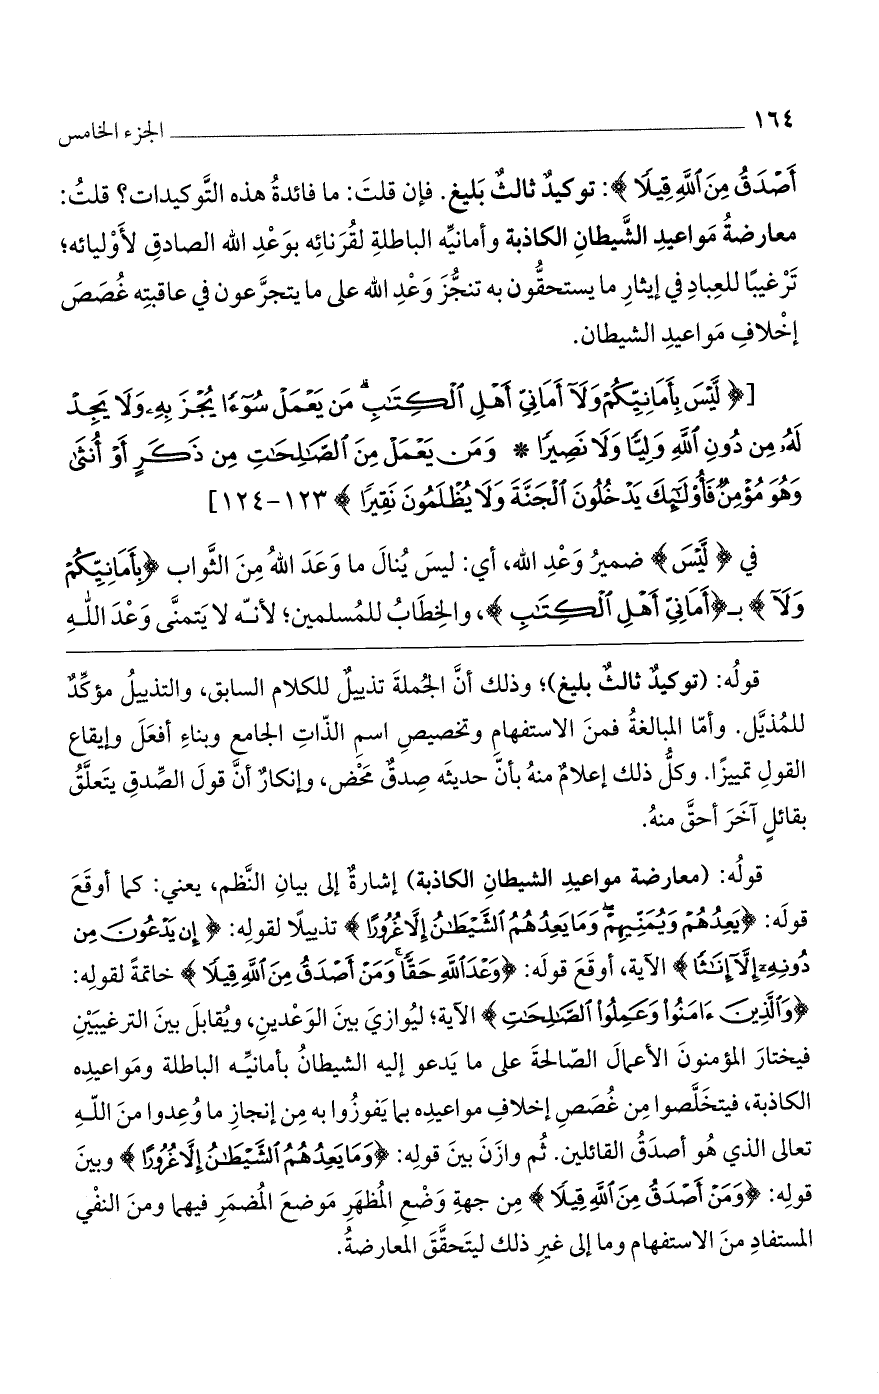 ١٦٤ ــــــــــــــــــــــــــــــــــــــــ الجزء الخامس
أَصْدَقُ مِنَ ٱللَّهِ قِيلًا ﴾: توكيدٌ ثالثٌ بَليغ. فإن قلتَ: ما فائدةُ هذه التَّوكيدات؟ قلتُ:
معارضةُ مَواعيدِ الشَّيطانِ الكاذبة وأمانيِّه الباطلةِ لقُرَنائِه بوَعْدِ الله الصادقِ لأَوْليائه؛
تَرْغيبًا للعِبادِ في إيثارِ ما يستحقُّون به تنجُّزَ وَعْدِ الله على ما يتجرَّعون في عاقبتِه غُصَصَ
إخْلافِ مَواعيدِ الشيطان.
[﴿ لَّيْسَ بِأَمَانِيِّكُمْ وَلَآ أَمَانِيِّ أَهْلِ ٱلْكِتَٰبِ ۗ مَن يَعْمَلْ سُوٓءًا يُجْزَ بِهِۦ وَلَا يَجِدْ
لَهُۥ مِن دُونِ ٱللَّهِ وَلِيًّا وَلَا نَصِيرًا * وَمَن يَعْمَلْ مِنَ ٱلصَّٰلِحَٰتِ مِن ذَكَرٍ أَوْ أُنثَىٰ
وَهُوَ مُؤْمِنٌ فَأُو۟لَٰٓئِكَ يَدْخُلُونَ ٱلْجَنَّةَ وَلَا يُظْلَمُونَ نَقِيرًا ﴾ ١٢٣-١٢٤]
في ﴿ لَّيْسَ ﴾ ضميرُ وَعْدِ الله، أي: ليسَ يُنالَ ما وَعَدَ اللهُ مِنَ الثَّواب ﴿بِأَمَانِيِّكُمْ
وَلَآ ﴾ بـ﴿أَمَانِيِّ أَهْلِ ٱلْكِتَٰبِ ﴾، والخِطَابُ للمُسلمين؛ لأنّه لا يَتمنَّى وَعْدَ اللهِ
قولُه: (توكيدٌ ثالثٌ بليغ)؛ وذلك أنَّ الجُملةَ تذييلٌ للكلام السابق، والتذييلُ مؤكِّدٌ
للمُذيَّل. وأمّا المبالغةُ فمنَ الاستفهامِ وتخصيصِ اسمِ الذّاتِ الجامع وبناءِ أفعَلَ وإيقاع
القولِ تمييزًا. وكلُّ ذلك إعلامٌ منهُ بأنَّ حديثَه صِدقٌ مَحْض، وإنكارٌ أنَّ قولَ الصِّدقِ يتعلَّقُ
بقائلٍ آخَرَ أحقَّ منهُ.
قولُه: (معارضة مواعيدِ الشيطانِ الكاذبة) إشارةٌ إلى بيانِ النَّظم، يعني: كما أوقَعَ
قولَه: ﴿يَعِدُهُمْ وَيُمَنِّيهِمْ ۖ وَمَا يَعِدُهُمُ ٱلشَّيْطَٰنُ إِلَّا غُرُورًا ﴾ تذييلًا لقولِه: ﴿ إِن يَدْعُونَ مِن
دُونِهِۦٓ إِلَّآ إِنَٰثًا ﴾ الآية، أوقَعَ قولَه: ﴿وَعْدَ ٱللَّهِ حَقًّا ۚ وَمَنْ أَصْدَقُ مِنَ ٱللَّهِ قِيلًا ﴾ خاتمةً لقولِه:
﴿وَٱلَّذِينَ ءَامَنُوا۟ وَعَمِلُوا۟ ٱلصَّٰلِحَٰتِ ﴾ الآية؛ ليُوازيَ بينَ الوَعْدينِ، ويُقابلَ بينَ الترغيبَيْنِ
فيختارَ المؤمنونَ الأعمالَ الصّالحةَ على ما يَدعو إليه الشيطانُ بأمانيِّه الباطلة ومَواعيدِه
الكاذبة، فيتخَلَّصوا مِن غُصَصِ إخلافِ مواعيدِه بما يَفوزُوا به مِن إنجازِ ما وُعِدوا منَ اللهِ
تعالى الذي هُو أصدَقُ القائلين. ثُم وازَنَ بينَ قولِه: ﴿وَمَا يَعِدُهُمُ ٱلشَّيْطَٰنُ إِلَّا غُرُورًا ﴾ وبينَ
قولِه: ﴿وَمَنْ أَصْدَقُ مِنَ ٱللَّهِ قِيلًا ﴾ مِن جهةِ وَضْعِ المُظهَرِ مَوضعَ المُضمَرِ فيهما ومنَ النفْي
المستفادِ منَ الاستفهامِ وما إلى غيرِ ذلك ليتَحقَّقَ المعارضةُ.